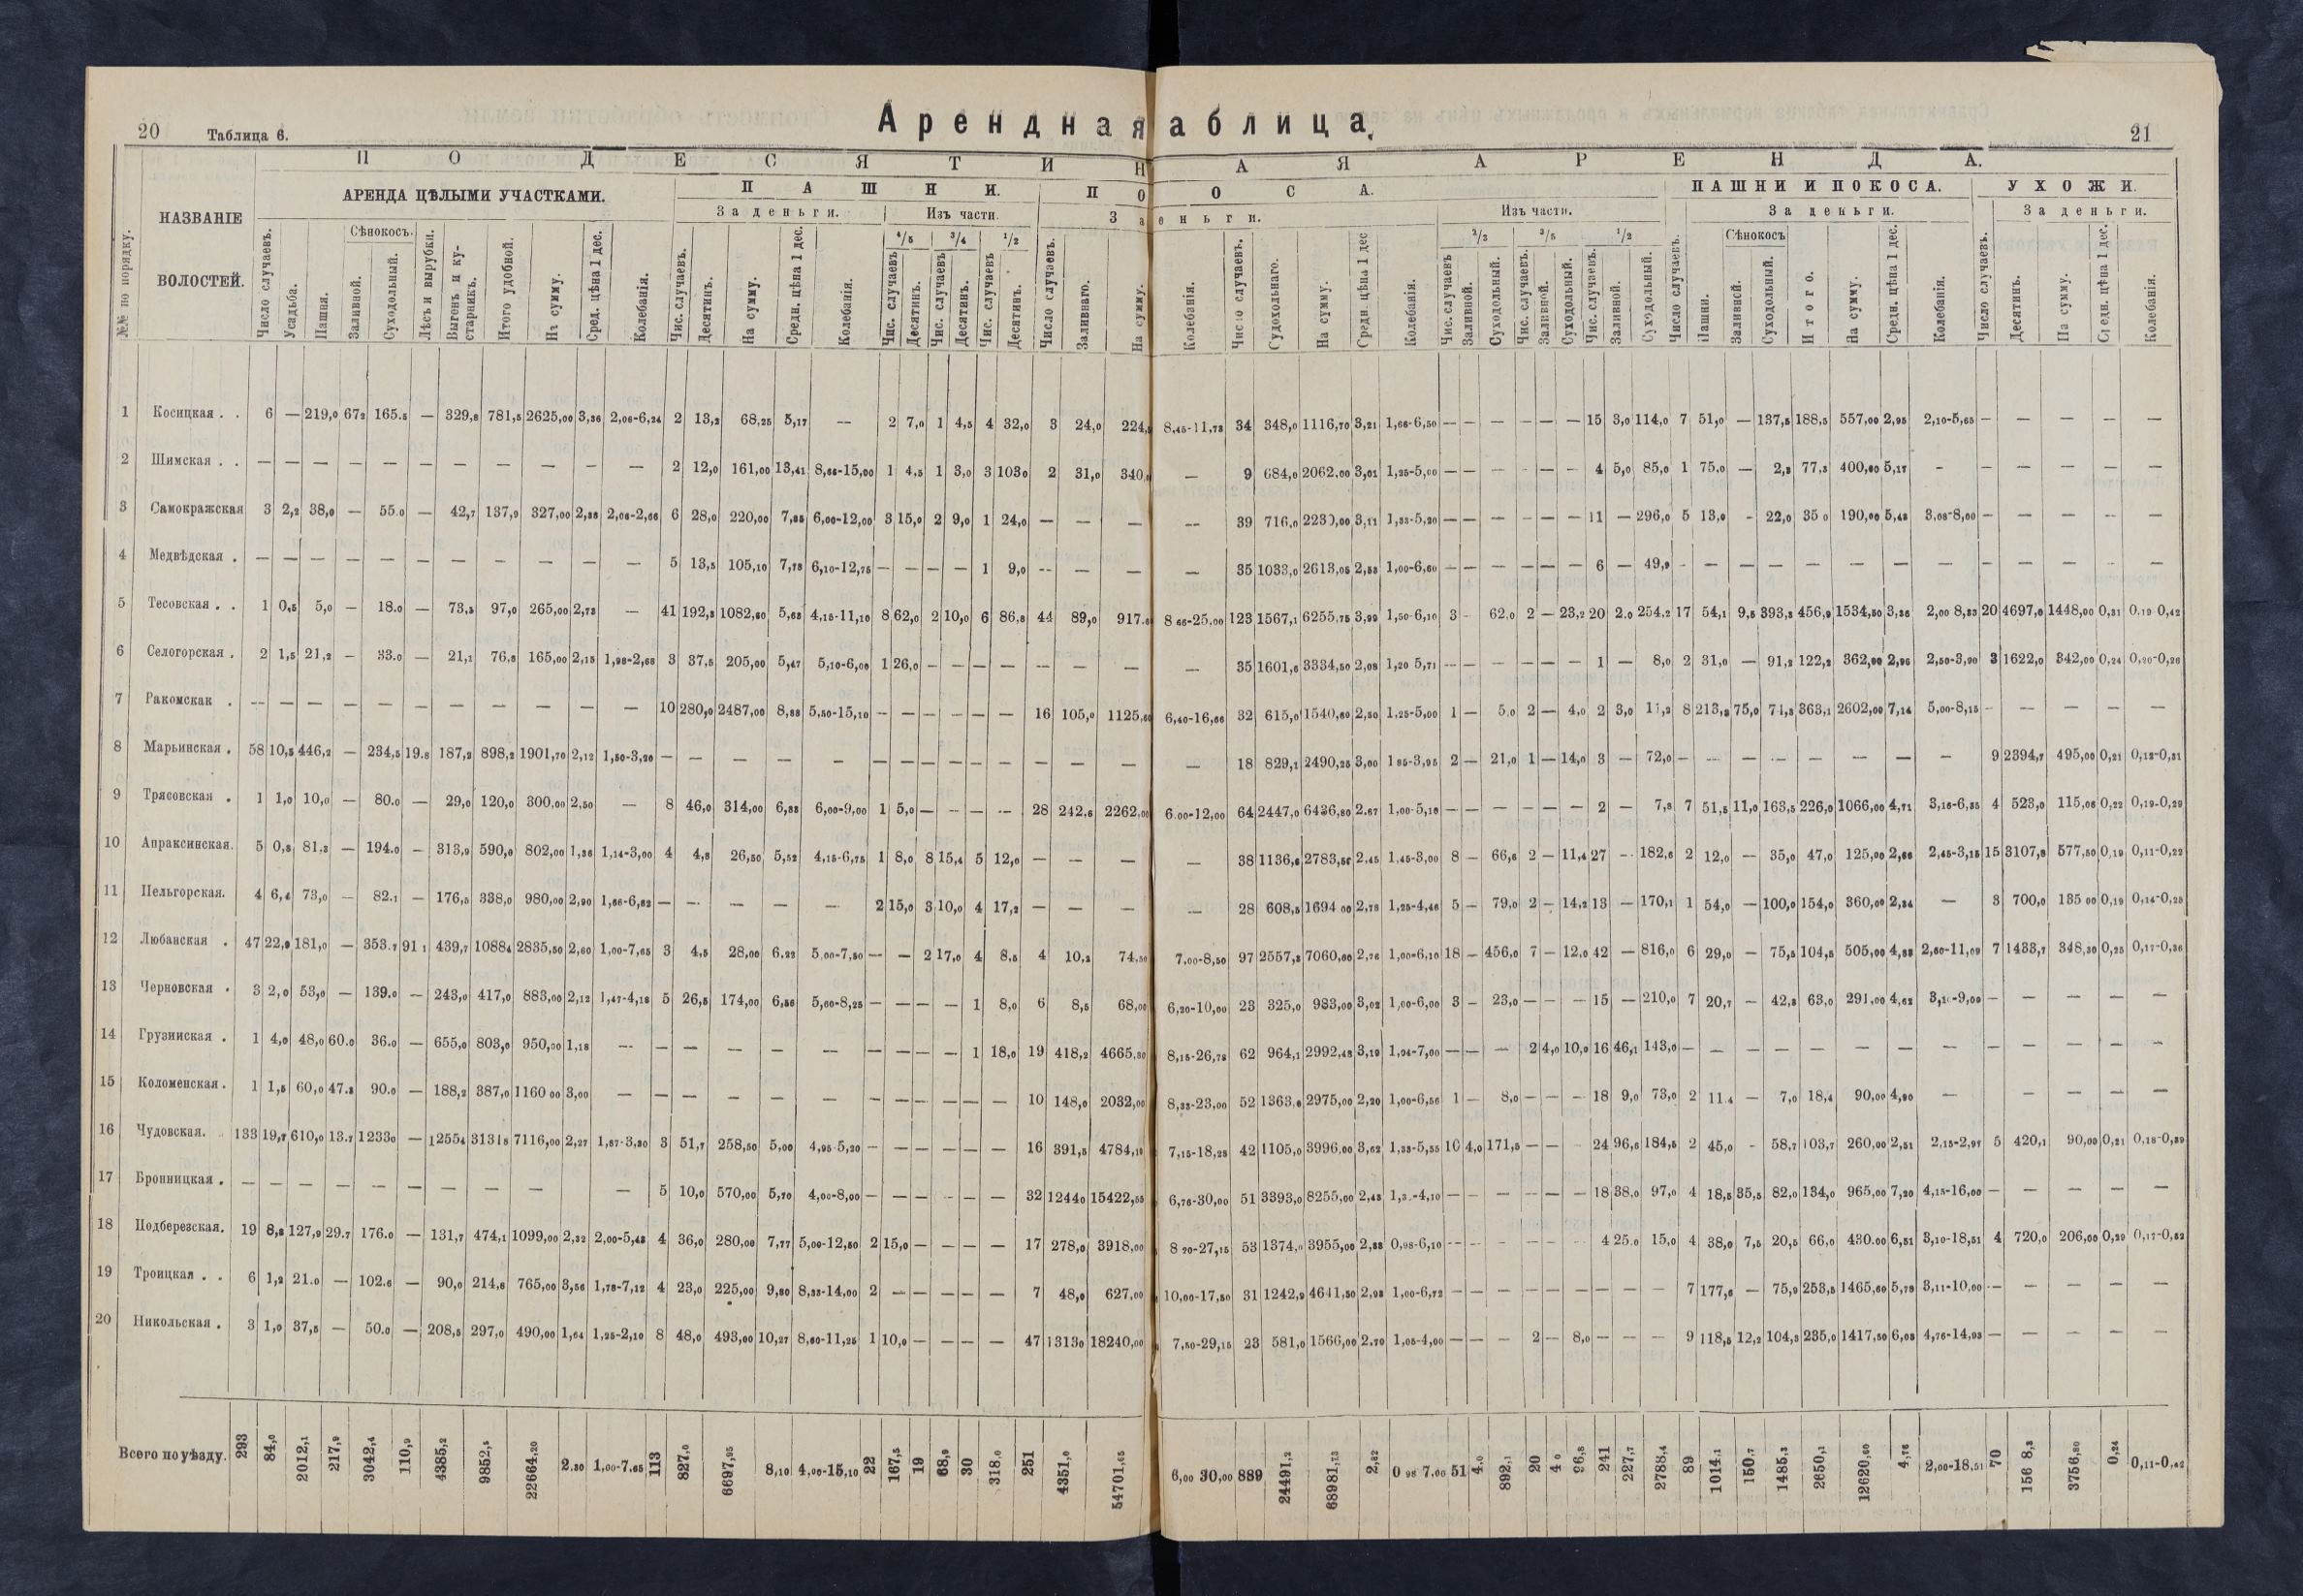 20 Таблица 6. Арендная аблица. 21
П О Д Е С Я Т И Н А Я А Р Е Н Д А.
№№ по порядку. НАЗВАНІЕ ВОЛОСТЕЙ. АРЕНДА ЦѢЛЫМИ УЧАСТКАМИ. П А Ш Н И. П О О С А. ПАШНИ И ПОКОСА. У Х О Ж И.
За деньги. Изъ части. За еньги. Изъ части. За деньги. За деньги.
Сѣнокосъ. 4/5 3/4 1/2 2/3 3/5 1/2 Сѣнокосъ
Число случаевъ. Усадьба. Пашня. Заливной. Суходольный. Лѣсъ и вырубки. Выгонъ и кустарникъ. Итого удобной. На сумму. Сред. цѣна 1 дес. Колебанія. Чис. случаевъ. Десятинъ. На сумму. Средн. цѣна 1 дес. Колебанія. Чис. случаевъ Десятинъ. Чис. случаевъ Десятинъ. Чис. случаевъ Десятинъ. Число случаевъ. Заливнаго. На сумму. Колебанія. Число случаевъ. Судохольнаго. На сумму. Средн. цѣна 1 дес Колебанія. Чис. случаевъ Заливной. Суходольный. Чис. случаевъ. Заливной. Суходольный. Чис. случаевъ. Заливной. Суходольный. Число случаевъ. Пашни. Заливной. Суходольный. Итого. На сумму. Средн. цѣна 1 дес. Колебанія. Число случаевъ. Десятинъ. На сумму. Средн. цѣна 1 дес. Колебанія.
1 Косицкая . . 6 — 219,0 672 165.5 — 329,8 781,5 2625,00 3,36 2,06-6,24 2 13,2 68,25 5,17 — 2 7,0 1 4,5 4 32,0 3 24,0 224, 8,45-11,73 34 348,0 1116,70 3,21 1,66-6,50 — — — — — — 15 3,0 114,0 7 51,0 — 137,5 188,5 557,00 2,95 2,10-5,65 — — — — —
2 Шимская . . — — — — — — — — — — — 2 12,0 161,00 13,41 8,66-15,00 1 4,5 1 3,0 3 1030 2 31,0 340, — 9 684,0 2062.00 3,01 1,25-5,00 — — — - — — 4 5,0 85,0 1 75.0 — 2,3 77,3 400,00 5,17 - — — — — —
3 Самокражская 3 2,2 38,0 — 55.0 — 42,7 137,9 327,00 2,38 2,06-2,66 6 28,0 220,00 7,85 6,00-12,00 3 15,0 2 9,0 1 24,0 — — — — 39 716,0 2230,00 3,11 1,33-5,20 — — — — — — 11 — 296,0 5 13,0 - 22,0 35 0 190,00 5,43 3,08-8,00 — — — — —
4 Медвѣдская . — — — — — — — — — — — 5 13,5 105,10 7,78 6,10-12,75 — — — — 1 9,0 -- — — — 35 1033,0 2613,05 2,53 1,00-6,60 — — — — — — 6 — 49,9 - — — — — — — — — — — — —
5 Тесовская . . 1 0,5 5,0 — 18.0 — 73,5 97,0 265,00 2,73 — 41 192,3 1082,60 5,63 4,15-11,10 8 62,0 2 10,0 6 86,8 44 89,0 917. 8 66-25,00 123 1567,1 6255,75 3,99 1,50-6,10 3 - 62.0 2 — 23,2 20 2.0 254.2 17 54,1 9,5 393,3 456,9 1534,50 3,36 2,00 8,33 20 4697,6 1448,00 0,31 0,19 0,42
6 Селогорская . 2 1,5 21,2 — 33.0 — 21,1 76,8 165,00 2,15 1,98-2,68 3 37,5 205,00 5,47 5,10-6,00 1 26,0 — — — — -- — — — 35 1601,6 3334,50 2,08 1,20 5,71 -- — — — — — 1 — 8,0 2 31,0 — 91,2 122,2 362,00 2,96 2,50-3,90 3 1622,0 342,00 0,24 0,20-0,26
7 Ракомскак . -- — — — — — — — — — — 10 280,0 2487,00 8,88 5,50-15,10 -- — — — — — 16 105,0 1125, 6,40-16,66 32 615,0 1540,60 2,50 1,25-5,00 1 — 5,0 2 — 4,0 2 3,0 11,2 8 213,3 75,0 74,8 363,1 2602,00 7,14 5,00-8,15 - — — — —
8 Марьинская . 58 10,5 446,2 — 234,5 19.8 187,2 898,2 1901,70 2,12 1,50-3,20 — — — — — — — — — — — — — — — 18 829,1 2490,25 3,00 1 85-3,95 2 — 21,0 1 — 14,0 3 — 72,0 — — — — — — — — 9 2394,7 495,00 0,21 0,13-0,31
9 Трясовская . 1 1,0 10,0 — 80.0 — 29,0 120,0 300.00 2,50 — 8 46,0 314,00 6,83 6,00-9,00 1 5,0 — — — — 28 242,6 2262,00 6.00-12,00 64 2447,0 6436,80 2.67 1,00-5,10 — — — — — — 2 — 7,8 7 51,5 11,0 163,5 226,0 1066,00 4,71 3,16-6,35 4 523,0 115,06 0,22 0,19-0,29
10 Апраксинская. 5 0,8 81,3 — 194.0 — 313,9 590,0 802,00 1,36 1,14-3,00 4 4,8 26,50 5,52 4,15-6,75 1 8,0 8 15,4 5 12,0 — — — — 38 1136,6 2783,5 2,45 1,45-3,00 8 — 66,6 2 — 11,4 27 — 182,6 2 12,0 — 35,0 47,0 125,00 2,66 2,45-3,15 15 3107,8 577,50 0,19 0,11-0,22
11 Пельгорская. 4 6,4 73,0 — 82.1 — 176,5 338,0 980,00 2,90 1,66-6,82 — — — — — 2 15,0 3 10,0 4 17,2 — — — — 28 608,5 1694 00 2,78 1,25-4,46 5 — 79,0 2 — 14,2 13 — 170,1 1 54,0 — 100,0 154,0 360,00 2,34 — 3 700,0 135 00 0,19 0,14-0,25
12 Любанская . 47 22,9 181,0 — 353.7 91 1 439,7 10884 2835,50 2,60 1,00-7,65 3 4,5 28,00 6.22 5.00-7,50 — — 2 17,0 4 8,5 4 10,2 74,50 7,00-8,50 97 2557,3 7060,60 2,76 1,00-6,10 18 — 456,0 7 — 12,0 42 — 816,0 6 29,0 — 75,5 104,5 505,00 4,83 2,60-11,09 7 1433,7 348,30 0,25 0,17-0,36
13 Черновская . 3 2,0 53,0 — 139.0 — 243,0 417,0 883,00 2,12 1,47-4,18 5 26,5 174,00 6,56 5,60-8,25 — — — — 1 8,0 6 8,5 68,00 6,20-10,00 23 325,0 983,00 3,02 1,00-6,00 3 — 23,0 — — — 15 — 210,0 7 20,7 — 42,3 63,0 291,00 4,62 3,1-9,00 — — — — —
14 Грузииская . 1 4,0 48,0 60.0 36.0 — 655,0 803,0 950,00 1,18 — — — — — — — — — — 1 18,0 19 418,2 4665,80 8,15-26,78 62 964,1 2992,48 3,10 1,04-7,00 — — — 2 4,0 10,0 16 46,1 143,0 — — — — — — — — — — — — —
15 Коломенская . 1 1,5 60,0 47.3 90.0 — 188,2 387,0 1160 00 3,00 — — — — — — — — — — — — 10 148,0 2032,00 8,33-23,00 52 1363,0 2975,00 2,20 1,00-6,56 1 — 8,0 — — — 18 9,0 73,0 2 11.4 — 7,0 18,4 90,00 4,90 — — — — —
16 Чудовская. . 133 19,7 610,0 13.7 12330 — 12554 31318 7116,00 2,27 1,87-3,30 3 51,7 258,50 5,00 4,95-5,20 — — — — — — 16 391,5 4784,10 7,15-18,25 42 1105,0 3996,00 3,62 1,33-5,55 10 4,0 171,5 — — - 24 96,6 184,5 2 45,0 - 58,7 103,7 260,00 2,51 2,15-2,97 5 420,1 90,00 0,21 0,18-0,39
17 Бронницкая . — — — — — — — — — — 5 10,0 570,00 5,70 4,00-8,00 — — — — — — 32 12440 15422,55 6,76-30,00 51 3393,0 8255,00 2,43 1,3-4,10 — — — — — — 18 38,0 97,0 4 18,5 35,5 82,0 134,0 965,00 7,20 4,15-16,00 — — — — —
18 Подберезская. 19 8,3 127,9 29.7 176.0 — 131,7 474,1 1099,00 2,32 2,00-5,43 4 36,0 280,00 7,77 5,00-12,50 2 15,0 — — — — 17 278,0 3918,00 8 20-27,15 53 1374,0 3955,00 2,88 0,98-6,10 -- — — - — — 4 25.0 15,0 4 38,0 7,5 20,5 66,0 430.00 6,51 3,10-18,51 4 720,0 206,00 0,29 0,17-0,52
19 Троицкая . . 6 1,2 21.0 — 102.6 — 90,0 214,8 765,00 3,56 1,78-7,12 4 23,0 225,00 9,80 8,33-14,00 2 — — — — — 7 48,0 627,00 10,00-17,50 31 1242,9 4641,50 2,98 1,00-6,72 — — — — — — — — — 7 177,6 — 75,9 253,5 1465,60 5,78 3,11-10,00 — — — — —
20 Никольская . 3 1,0 37,5 — 50.0 — 208,5 297,0 490,00 1,64 1,25-2,10 8 48,0 493,00 10,27 8,60-11,25 1 10,0 — — — — 47 13130 18240,00 7,50-29,15 23 581,0 1566,00 2.70 1,05-4,00 — — — 2 — 8,0 — — — 9 118,5 12,2 104,3 235,0 1417,50 6,03 4,76-14,93 — — — — —
Всего по уѣзду. 293 84,0 2012,1 217,9 3042,4 110,9 4385,2 9852,5 22664,20 2.30 1,00-7.65 113 827,0 6697,95 8,10 4,00-15,10 22 167,5 19 68,9 30 318,0 251 4351,0 54701,65 6,00 30,00 889 24491,2 68981,13 2,82 0 98 7,00 51 4,0 892,1 20 4 0 96,8 241 227,7 2788,4 89 1014,1 150,7 1485,3 2650,1 12620,60 4,76 2,00-18,51 70 156 8,3 3756,80 0,24 0,11-0,42